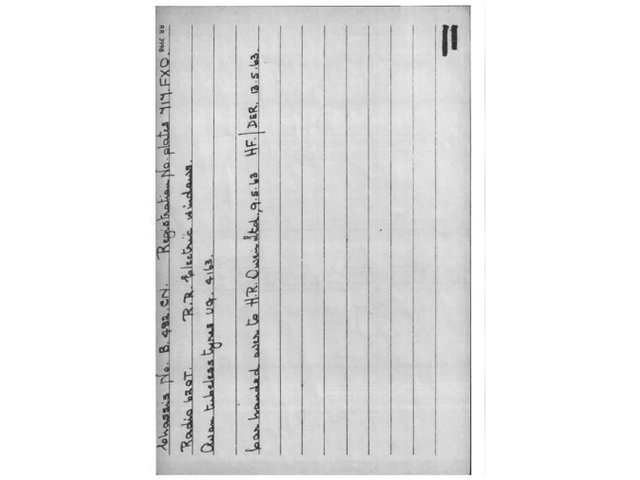 RR 3998
Chassis No. B. 482. CN. Registration No. plates 717. FXO.
Radio 620T. R.R. Electric windows.
Avon tubeless tyres U.G. 4163.
Car handed over to H.R. Owen Ltd, 9.5.63 HF/DER. 13.5.63.